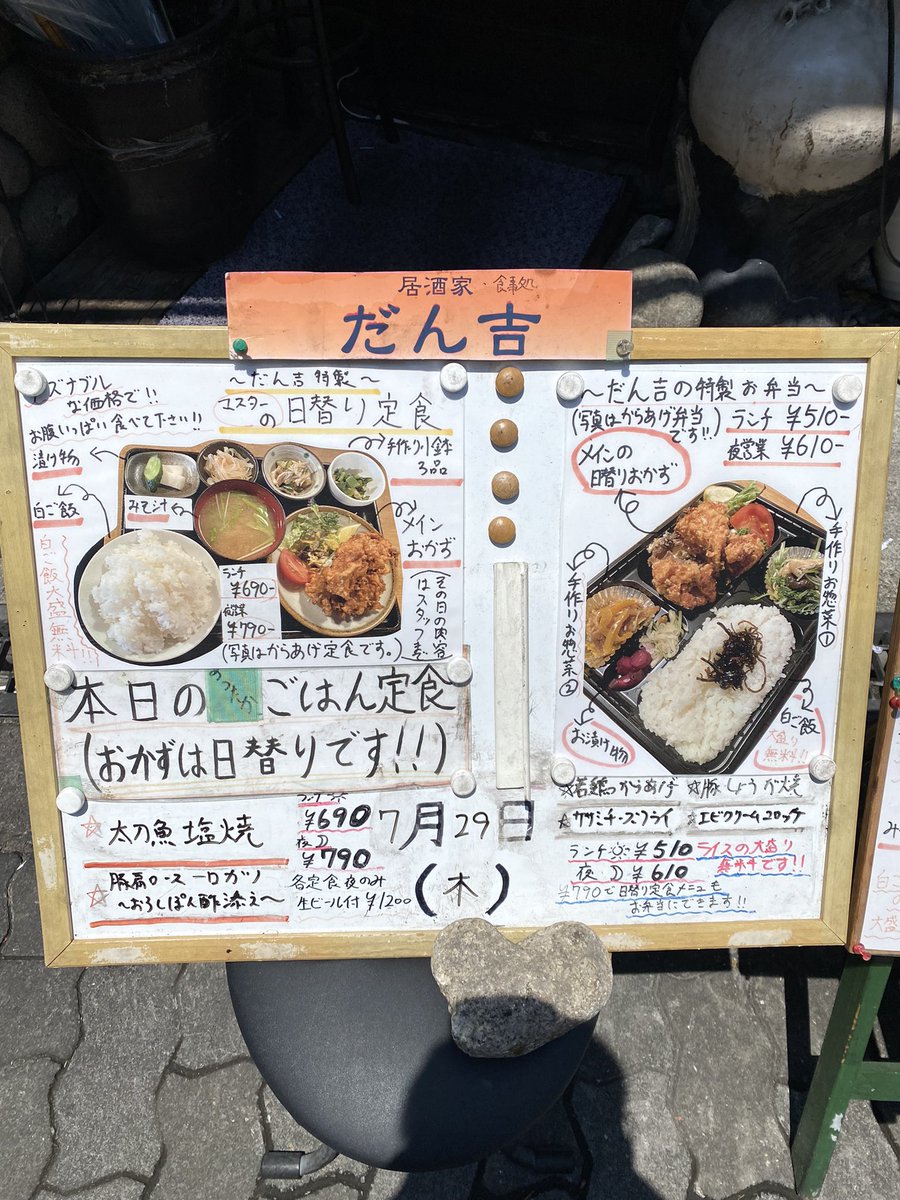 居酒家・食事処
だん吉
ズナブル
な価格で!!
お腹いっぱい食べて下さい!!
~だん吉特製~
マスター
の日替り定食
漬け物
白ご飯
白ご飯大盛無料!!
みそ汁
手作り小鉢
3品
メイン
おかず
(その日の内容
はスタッフ迄)
ランチ
¥690-
夜営業
¥790-
(写真はからあげ定食です。)
本日の
ごはん定食
(おかずは日替りです!!)
☆太刀魚塩焼
☆豚肩ロース一口カツ
~おろしぽん酢添え~
¥690
夜☽
¥790
各定食夜のみ
生ビール付¥1200
7月29日
(木)
~だん吉の特製お弁当~
(写真はからあげ弁当
です!!)
ランチ ¥510-
夜営業 ¥610-
メインの
日替りおかず
手作りお惣菜①
手作りお惣菜②
お漬け物
白ご飯
大盛り
無料!!
☆若鶏のからあげ ☆豚しょうが焼
☆ササミチーズフライ ☆エビクリームコロッケ
ランチ☀¥510
ライスの大盛り
無料です!!
夜☽¥610
¥790で日替り定食メニューも
お弁当にできます!!